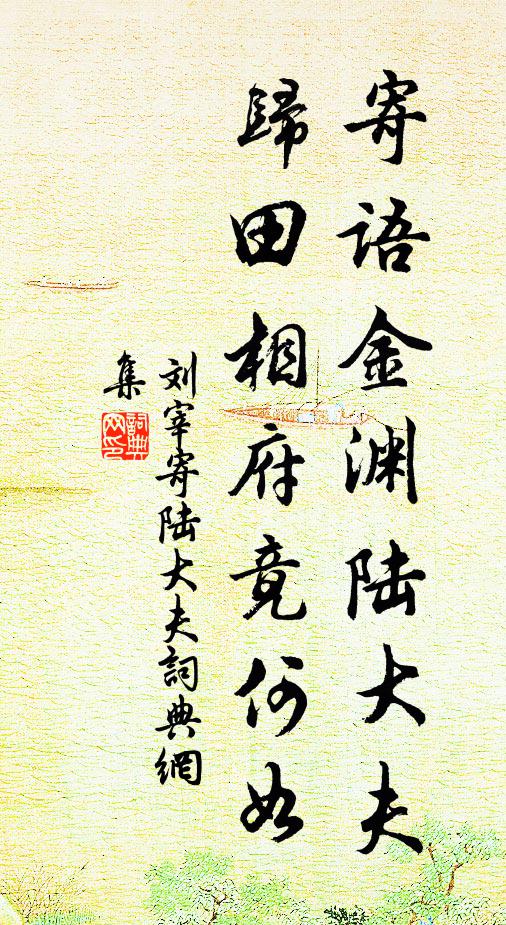 寄语金渊陆大夫
歸田相府竟何如
刘宰寄陆大夫詞典網
集
詞典
网印